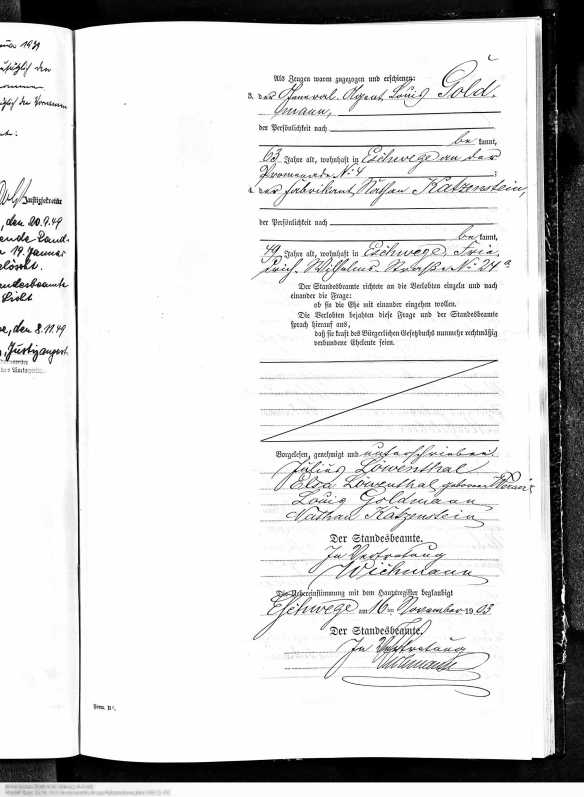 1939
zusätzlich den
Justizsekretär
, den 20.9.49
19. Januar
gelöscht.
Standesbeamte
Licht
, den 8.11.49
, Justizangest.
Als Zeugen waren zugezogen und erschienen:
3. der General-Agent Louis Gold-
mann,
der Persönlichkeit nach
be kannt,
63 Jahre alt, wohnhaft in Eschwege an der
Promenade No 4 ;
4. der Fabrikant Nathan Katzenstein,
der Persönlichkeit nach
be kannt,
49 Jahre alt, wohnhaft in Eschwege, Frie-
drich-Wilhelms-Straße No 24a
Der Standesbeamte richtete an die Verlobten einzeln und nach
einander die Frage:
ob sie die Ehe mit einander eingehen wollen.
Die Verlobten bejahten diese Frage und der Standesbeamte
sprach hierauf aus,
daß sie kraft des Bürgerlichen Gesetzbuchs nunmehr rechtmäßig
verbundene Eheleute seien.
Vorgelesen, genehmigt und unterschrieben.
Julius Löwenthal
Elsa Löwenthal geborene
Louis Goldmann
Nathan Katzenstein
Der Standesbeamte.
In Vertretung
Wichmann
Die Uebereinstimmung mit dem Hauptregister beglaubigt
Eschwege am 16ten November 1903
Der Standesbeamte.
In Vertretung
Wichmann
Form. B